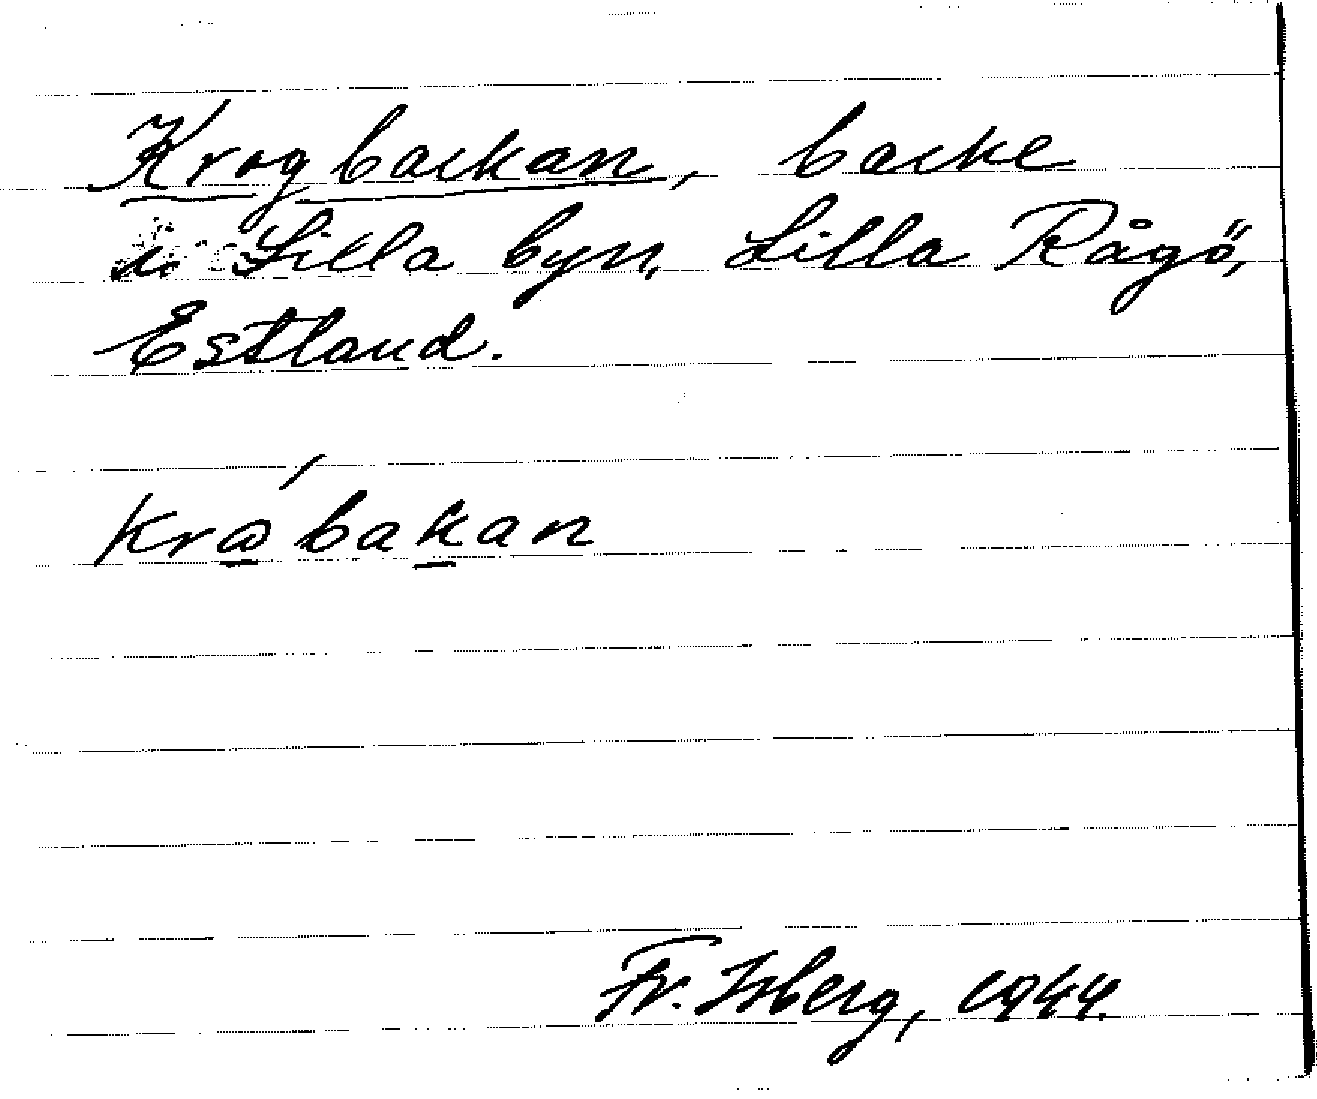 Krogbackan, backe
i Lilla byn, Lilla Rågö,
Estland.
krǻbakan
Fr. Isberg, 1944.